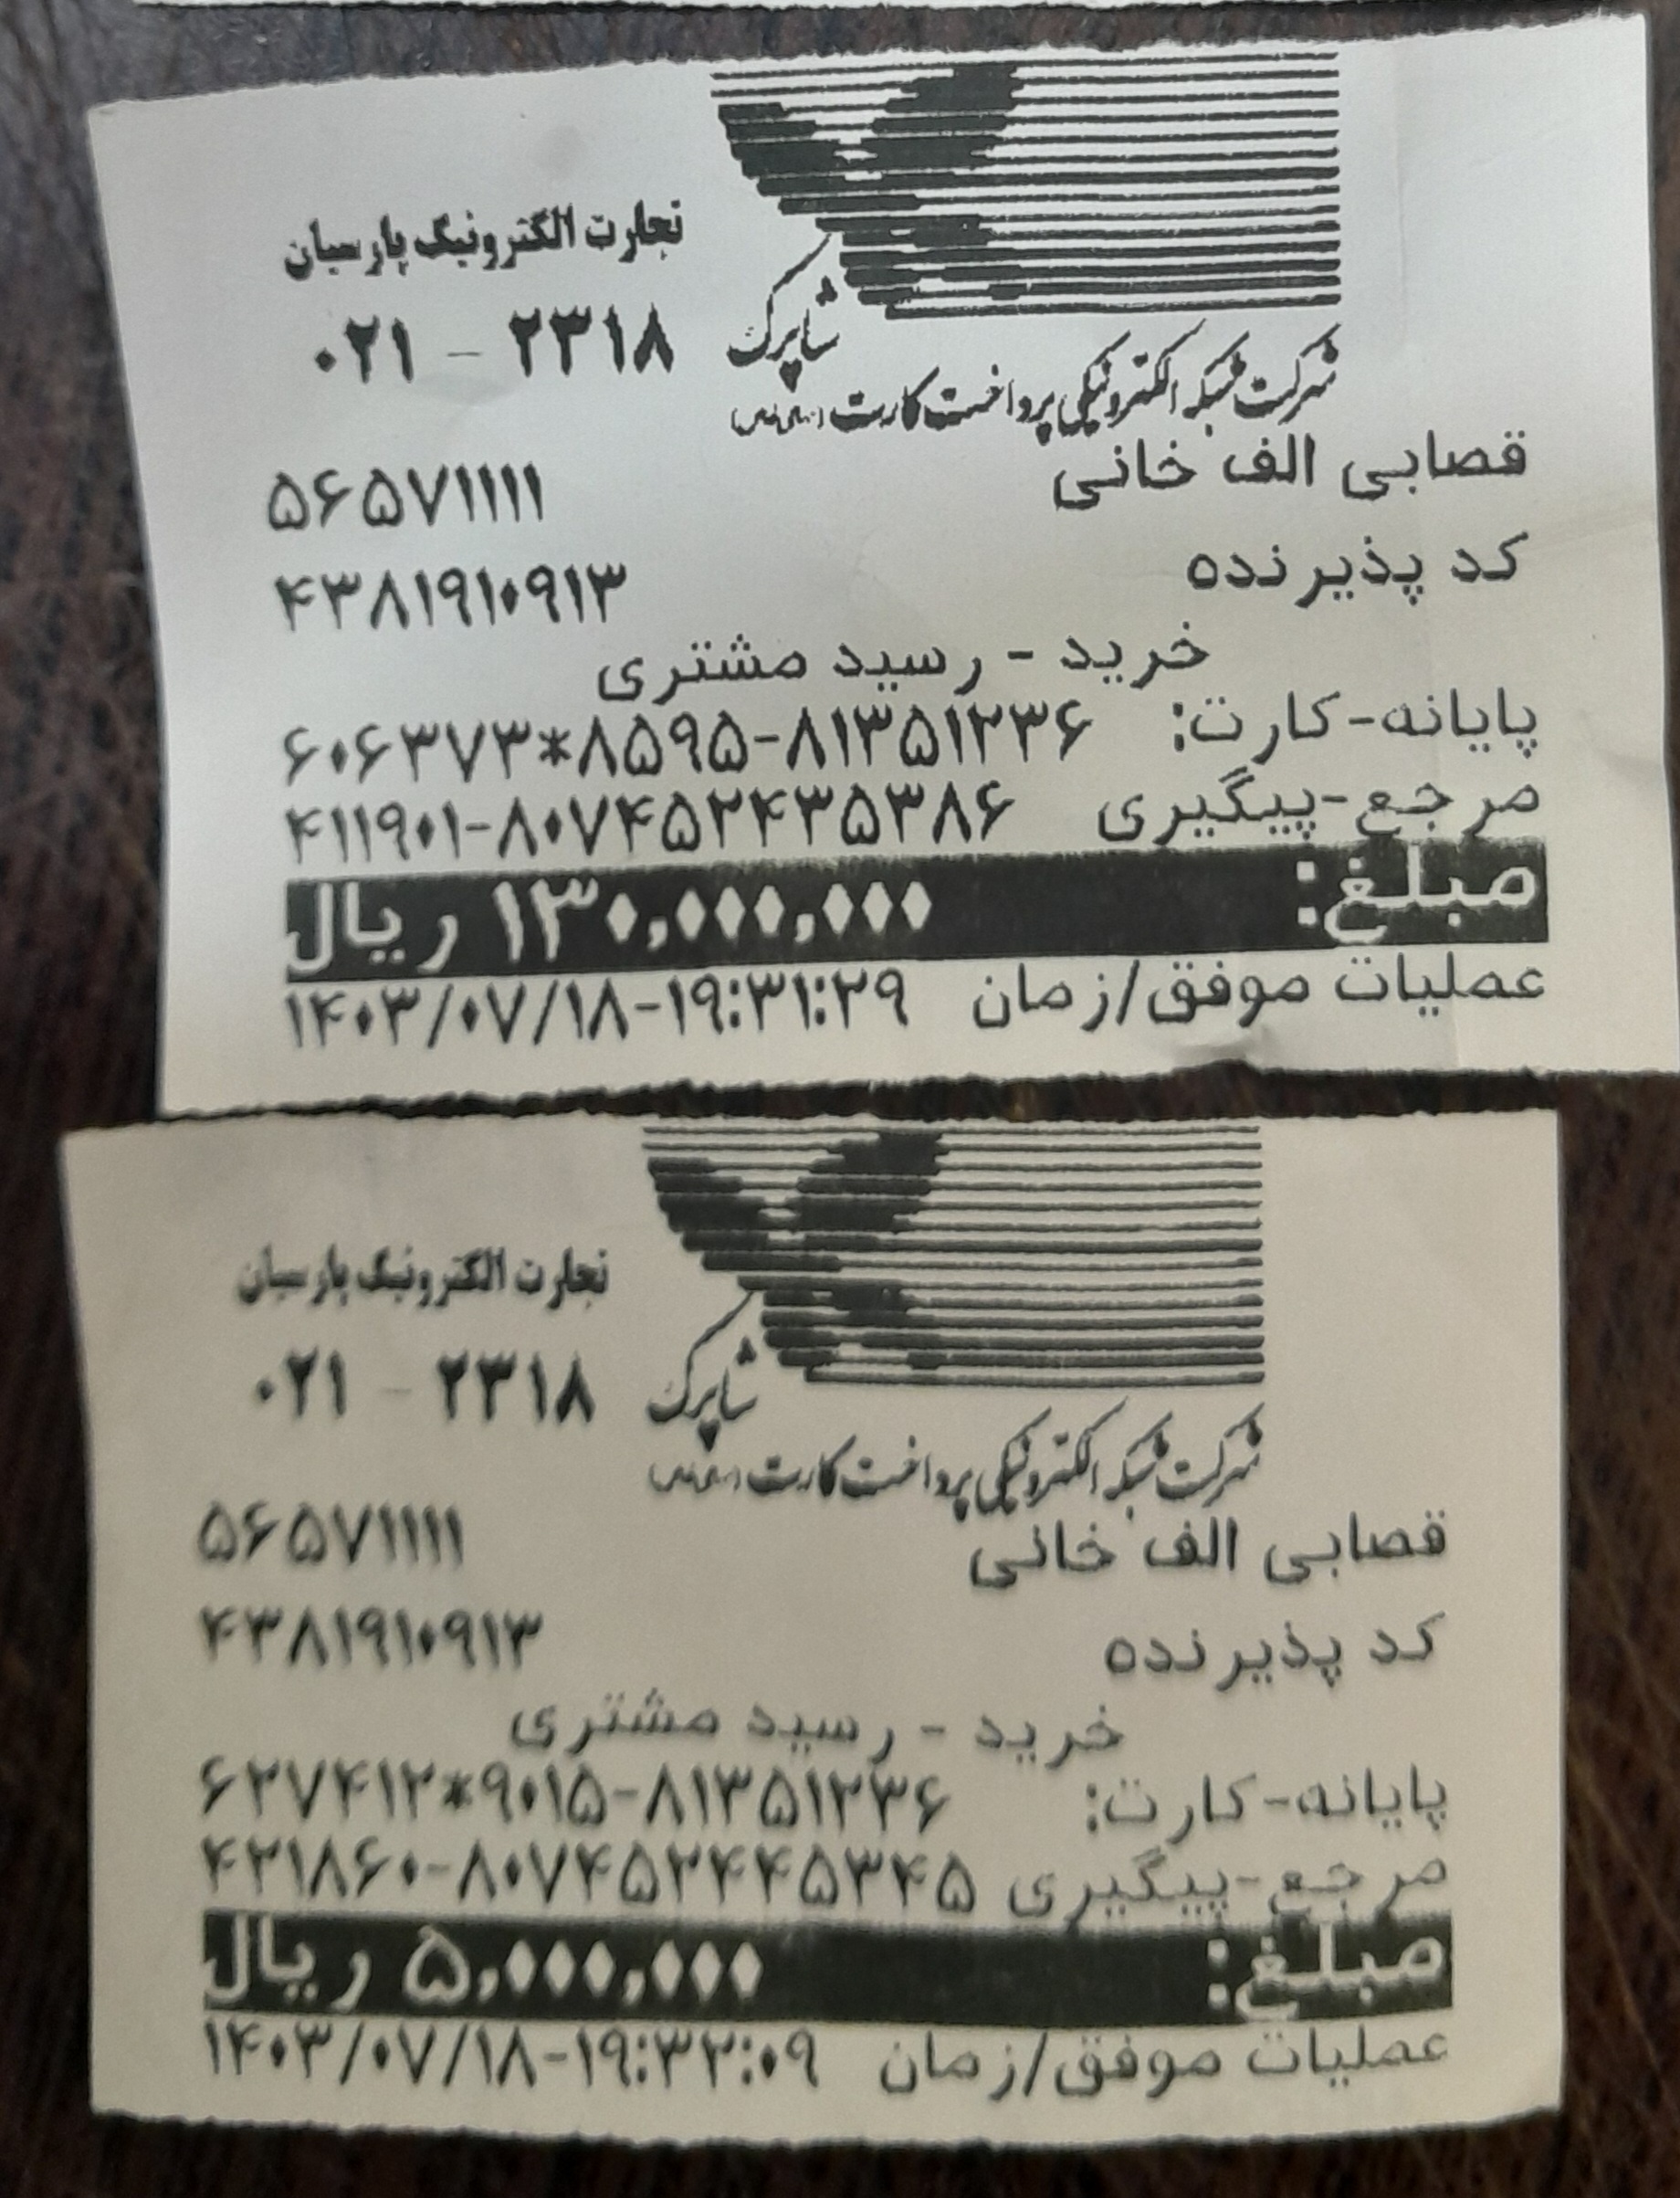 تجارت الکترونیک پارسیان
۰۲۱ - ۲۳۱۸
شاپرک
شرکت شبکه الکترونیکی پرداخت کارت
قصابی الف خانی ۵۶۵۷۱۱۱۱
کد پذیرنده ۴۳۸۱۹۱۰۹۱۳
خرید - رسید مشتری
پایانه-کارت: ۶۰۶۳۷۳*۸۵۹۵-۸۱۳۵۱۲۳۶
مرجع-پیگیری ۴۱۱۹۰۱-۸۰۷۴۵۲۴۳۵۳۸۶
مبلغ: ۱۳۰,۰۰۰,۰۰۰ ریال
عملیات موفق/زمان ۱۴۰۳/۰۷/۱۸-۱۹:۳۱:۲۹
تجارت الکترونیک پارسیان
۰۲۱ - ۲۳۱۸
شاپرک
شرکت شبکه الکترونیکی پرداخت کارت
قصابی الف خانی ۵۶۵۷۱۱۱۱
کد پذیرنده ۴۳۸۱۹۱۰۹۱۳
خرید - رسید مشتری
پایانه-کارت: ۶۲۷۴۱۲*۹۰۱۵-۸۱۳۵۱۲۳۶
مرجع-پیگیری ۴۲۱۸۶۰-۸۰۷۴۵۲۴۴۵۳۴۵
مبلغ: ۵,۰۰۰,۰۰۰ ریال
عملیات موفق/زمان ۱۴۰۳/۰۷/۱۸-۱۹:۳۲:۰۹